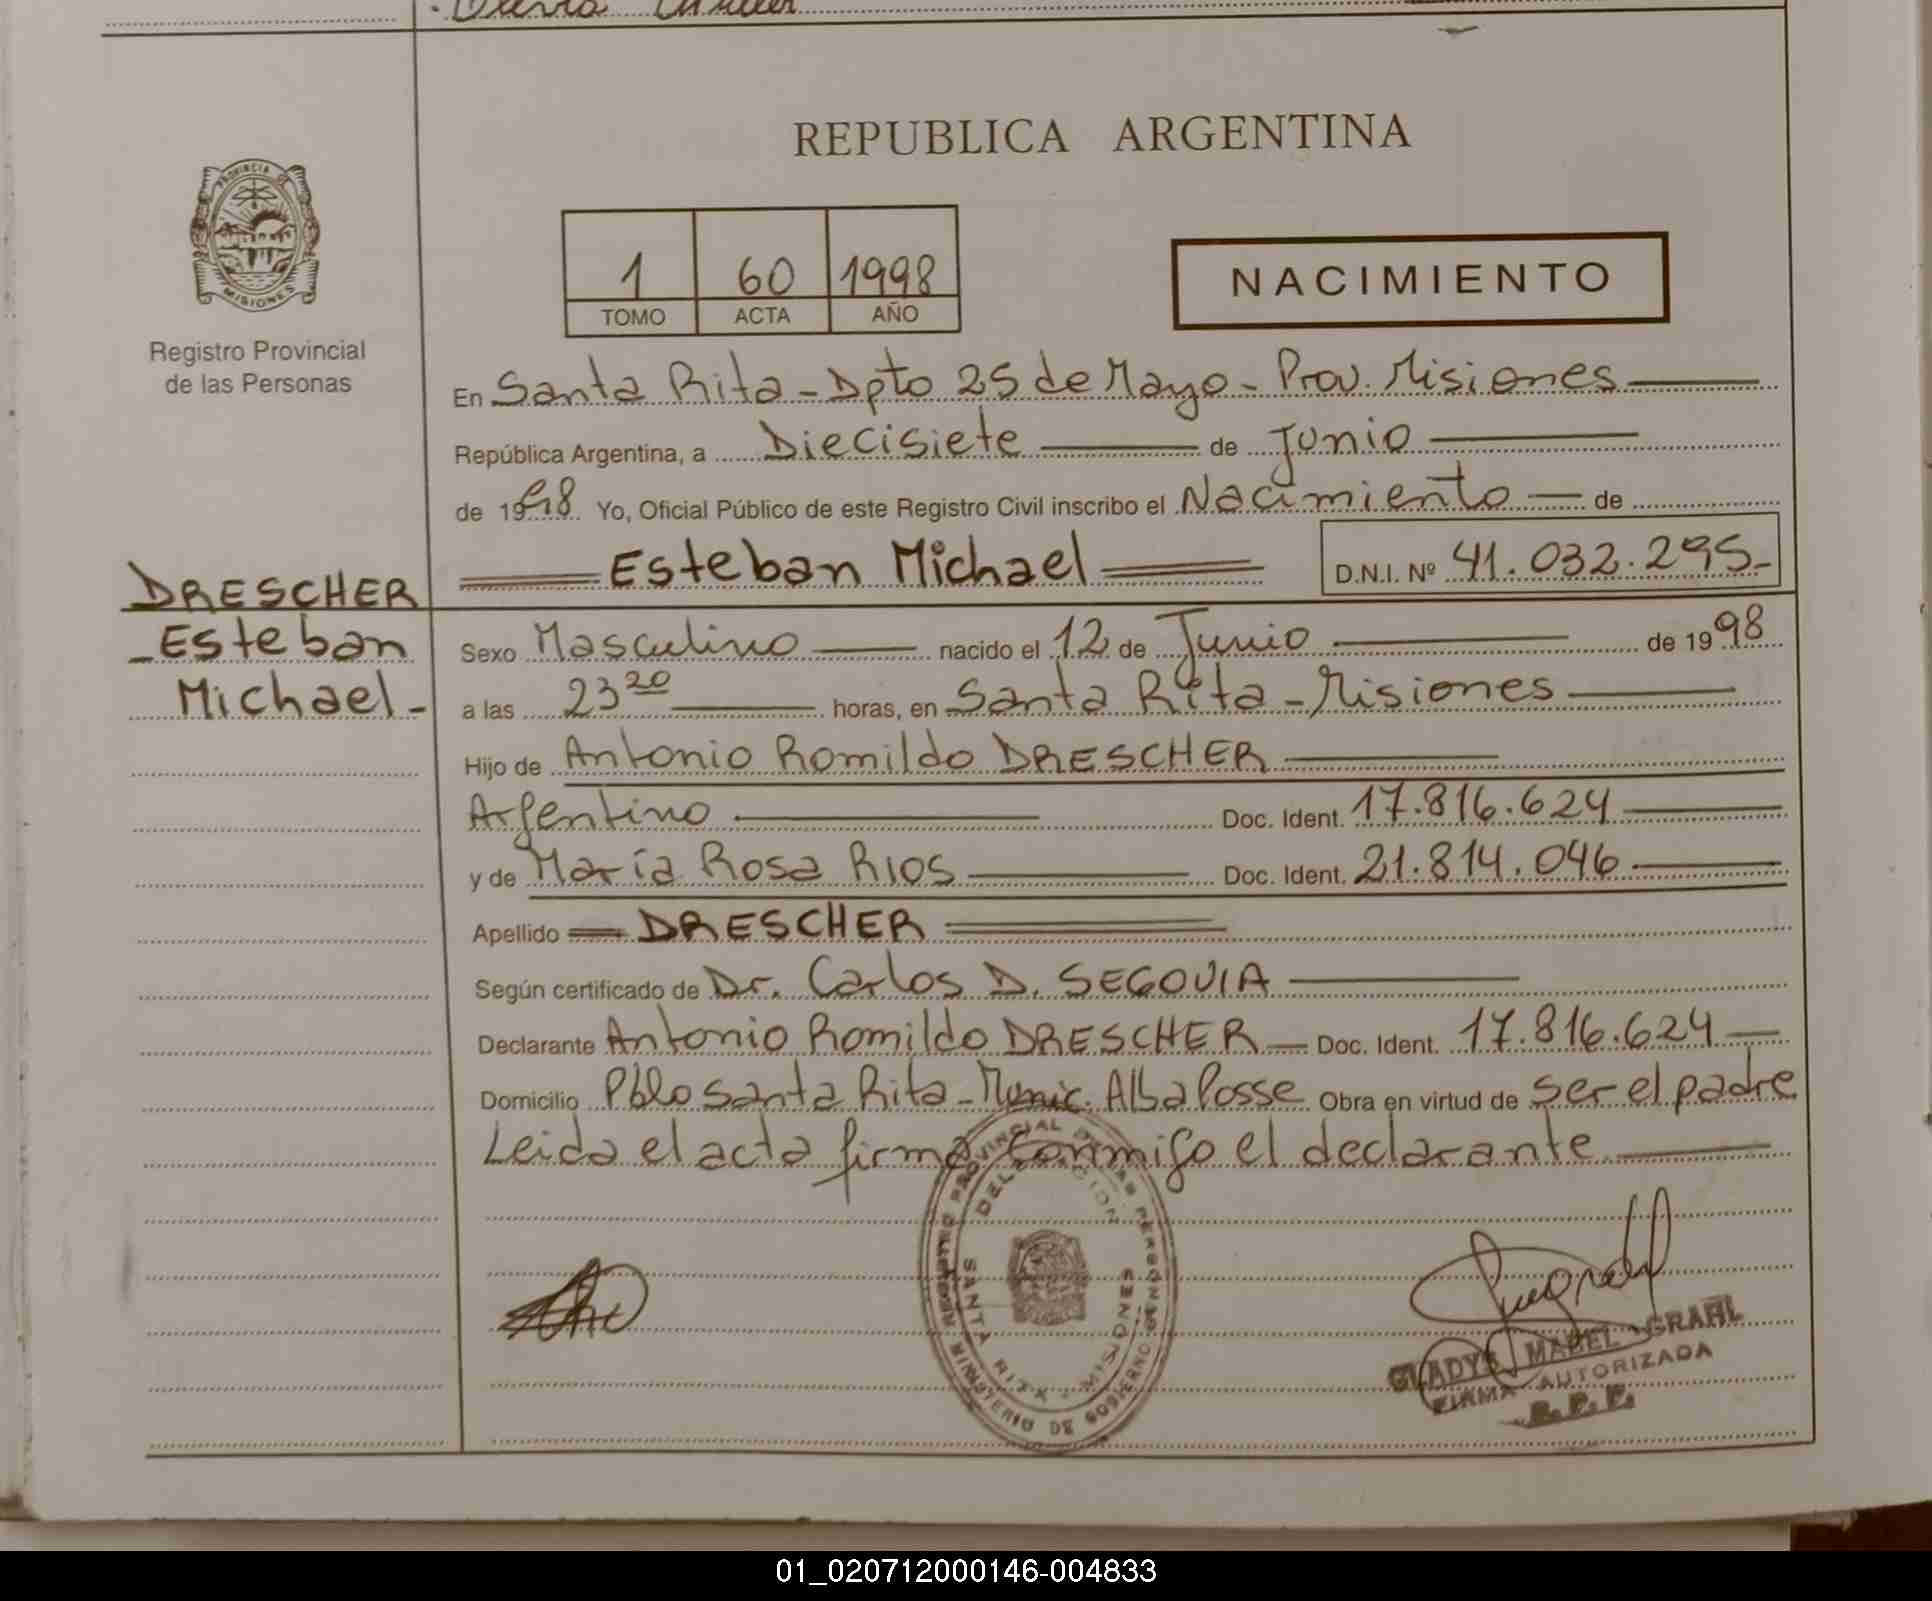 REPUBLICA ARGENTINA
PROVINCIA DE
MISIONES
Registro Provincial
de las Personas
1 60 1998
TOMO ACTA AÑO
NACIMIENTO
En Santa Rita - Dpto 25 de Mayo - Prov. Misiones
República Argentina, a Diecisiete de Junio
de 1998 Yo, Oficial Público de este Registro Civil inscribo el Nacimiento de
Esteban Michael D.N.I. Nº 41.032.295-
DRESCHER
- Esteban
Michael -
Sexo Masculino nacido el 12 de Junio de 1998
a las 23 20 horas, en Santa Rita - Misiones
Hijo de Antonio Romildo DRESCHER
Argentino Doc. Ident. 17.816.624
y de María Rosa RIOS Doc. Ident. 21.814.046
Apellido DRESCHER
Según certificado de Dr. Carlos D. SEGOVIA
Declarante Antonio Romildo DRESCHER Doc. Ident. 17.816.624
Domicilio Pblo Santa Rita - Munic. Alba Posse Obra en virtud de ser el padre
Leida el acta firma conmigo el declarante
REGISTRO PROVINCIAL DE LAS PERSONAS
MINISTERIO DE GOBIERNO
DELEGACION
SANTA RITA - MISIONES
GLADYS MABEL GRAHL
FIRMA AUTORIZADA
R. P. P.
01_020712000146-004833